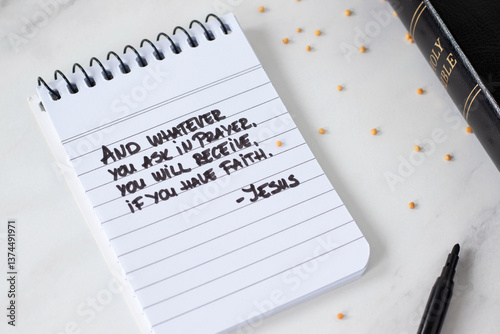 And whatever
you ask in prayer,
you will receive,
if you have faith.
-Jesus
HOLY BIBLE
Adobe Stock | #1374491971